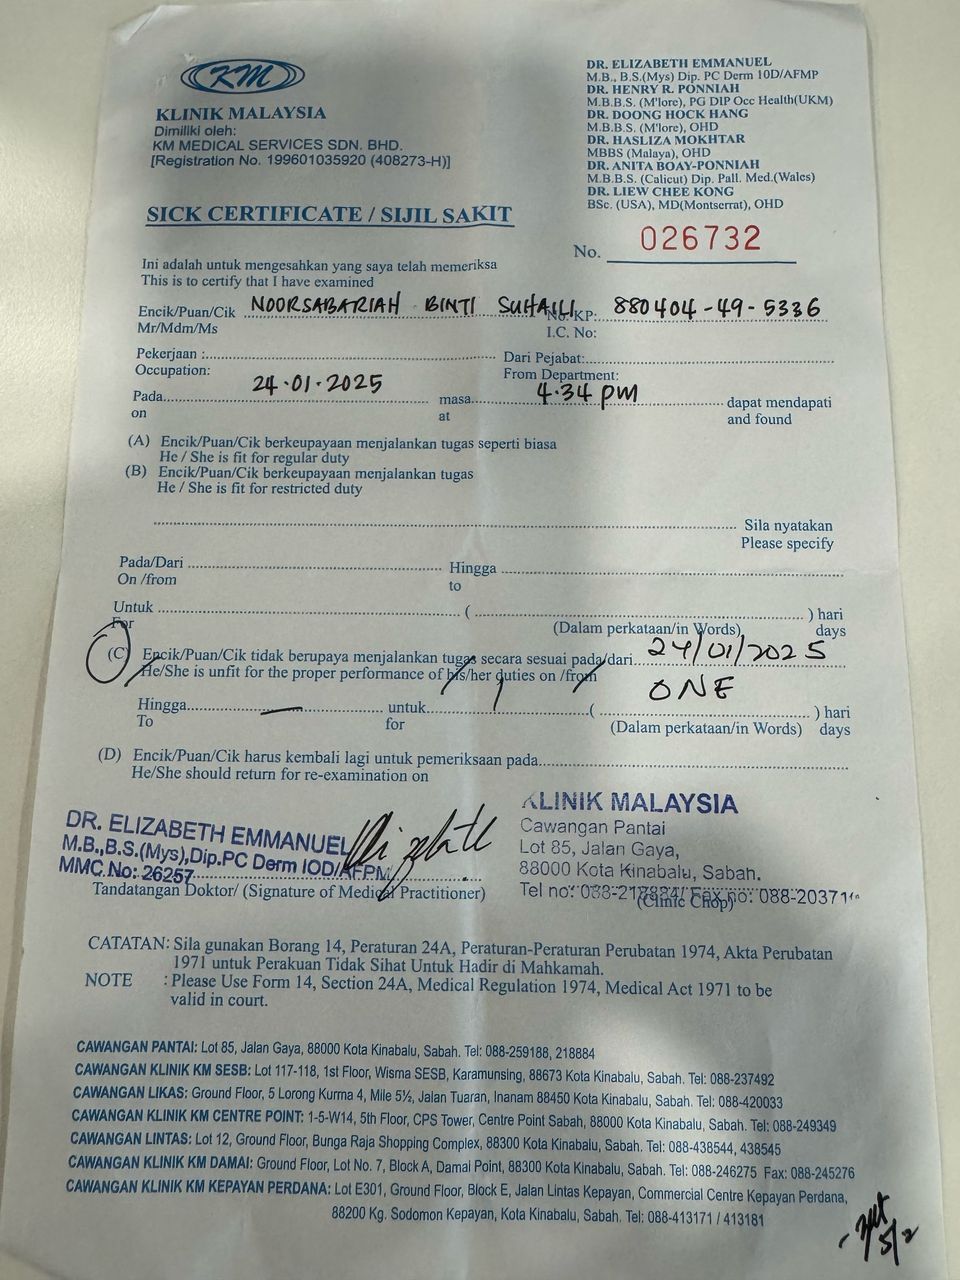 KM
KLINIK MALAYSIA
Dimiliki oleh:
KM MEDICAL SERVICES SDN. BHD.
[Registration No. 199601035920 (408273-H)]
DR. ELIZABETH EMMANUEL
M.B., B.S.(Mys) Dip. PC Derm 10D/AFMP
DR. HENRY R. PONNIAH
M.B.B.S. (M'lore), PG DIP Occ Health(UKM)
DR. DOONG HOCK HANG
M.B.B.S. (M'lore), OHD
DR. HASLIZA MOKHTAR
MBBS (Malaya), OHD
DR. ANITA BOAY-PONNIAH
M.B.B.S. (Calicut) Dip. Pall. Med.(Wales)
DR. LIEW CHEE KONG
BSc. (USA), MD(Montserrat), OHD
SICK CERTIFICATE / SIJIL SAKIT
No. 026732
Ini adalah untuk mengesahkan yang saya telah memeriksa
This is to certify that I have examined
Encik/Puan/Cik NOORSABARIAH BINTI SUHAILI No. KP: 880404-49-5336
Mr/Mdm/Ms I.C. No:
Pekerjaan : Dari Pejabat:
Occupation: From Department:
Pada 24.01.2025 masa 4.34 pm dapat mendapati
on at and found
(A) Encik/Puan/Cik berkeupayaan menjalankan tugas seperti biasa
He / She is fit for regular duty
(B) Encik/Puan/Cik berkeupayaan menjalankan tugas
He / She is fit for restricted duty
Sila nyatakan
Please specify
Pada/Dari Hingga
On /from to
Untuk ( ) hari
For (Dalam perkataan/in Words) days
(C) Encik/Puan/Cik tidak berupaya menjalankan tugas secara sesuai pada/dari 24/01/2025
He/She is unfit for the proper performance of his/her duties on /from
Hingga — untuk 1 ( ONE ) hari
To for (Dalam perkataan/in Words) days
(D) Encik/Puan/Cik harus kembali lagi untuk pemeriksaan pada
He/She should return for re-examination on
DR. ELIZABETH EMMANUEL
M.B.,B.S.(Mys),Dip.PC Derm IOD/AFPM
MMC.No: 26257
Tandatangan Doktor/ (Signature of Medical Practitioner)
KLINIK MALAYSIA
Cawangan Pantai
Lot 85, Jalan Gaya,
88000 Kota Kinabalu, Sabah.
Tel no: 088-218884/ Fax no: 088-20371
(Clinic Chop)
CATATAN: Sila gunakan Borang 14, Peraturan 24A, Peraturan-Peraturan Perubatan 1974, Akta Perubatan
1971 untuk Perakuan Tidak Sihat Untuk Hadir di Mahkamah.
NOTE : Please Use Form 14, Section 24A, Medical Regulation 1974, Medical Act 1971 to be
valid in court.
CAWANGAN PANTAI: Lot 85, Jalan Gaya, 88000 Kota Kinabalu, Sabah. Tel: 088-259188, 218884
CAWANGAN KLINIK KM SESB: Lot 117-118, 1st Floor, Wisma SESB, Karamunsing, 88673 Kota Kinabalu, Sabah. Tel: 088-237492
CAWANGAN LIKAS: Ground Floor, 5 Lorong Kurma 4, Mile 5½, Jalan Tuaran, Inanam 88450 Kota Kinabalu, Sabah. Tel: 088-420033
CAWANGAN KLINIK KM CENTRE POINT: 1-5-W14, 5th Floor, CPS Tower, Centre Point Sabah, 88000 Kota Kinabalu, Sabah. Tel: 088-249349
CAWANGAN LINTAS: Lot 12, Ground Floor, Bunga Raja Shopping Complex, 88300 Kota Kinabalu, Sabah. Tel: 088-438544, 438545
CAWANGAN KLINIK KM DAMAI: Ground Floor, Lot No. 7, Block A, Damai Point, 88300 Kota Kinabalu, Sabah. Tel: 088-246275 Fax: 088-245276
CAWANGAN KLINIK KM KEPAYAN PERDANA: Lot E301, Ground Floor, Block E, Jalan Lintas Kepayan, Commercial Centre Kepayan Perdana,
88200 Kg. Sodomon Kepayan, Kota Kinabalu, Sabah. Tel: 088-413171 / 413181
5/2